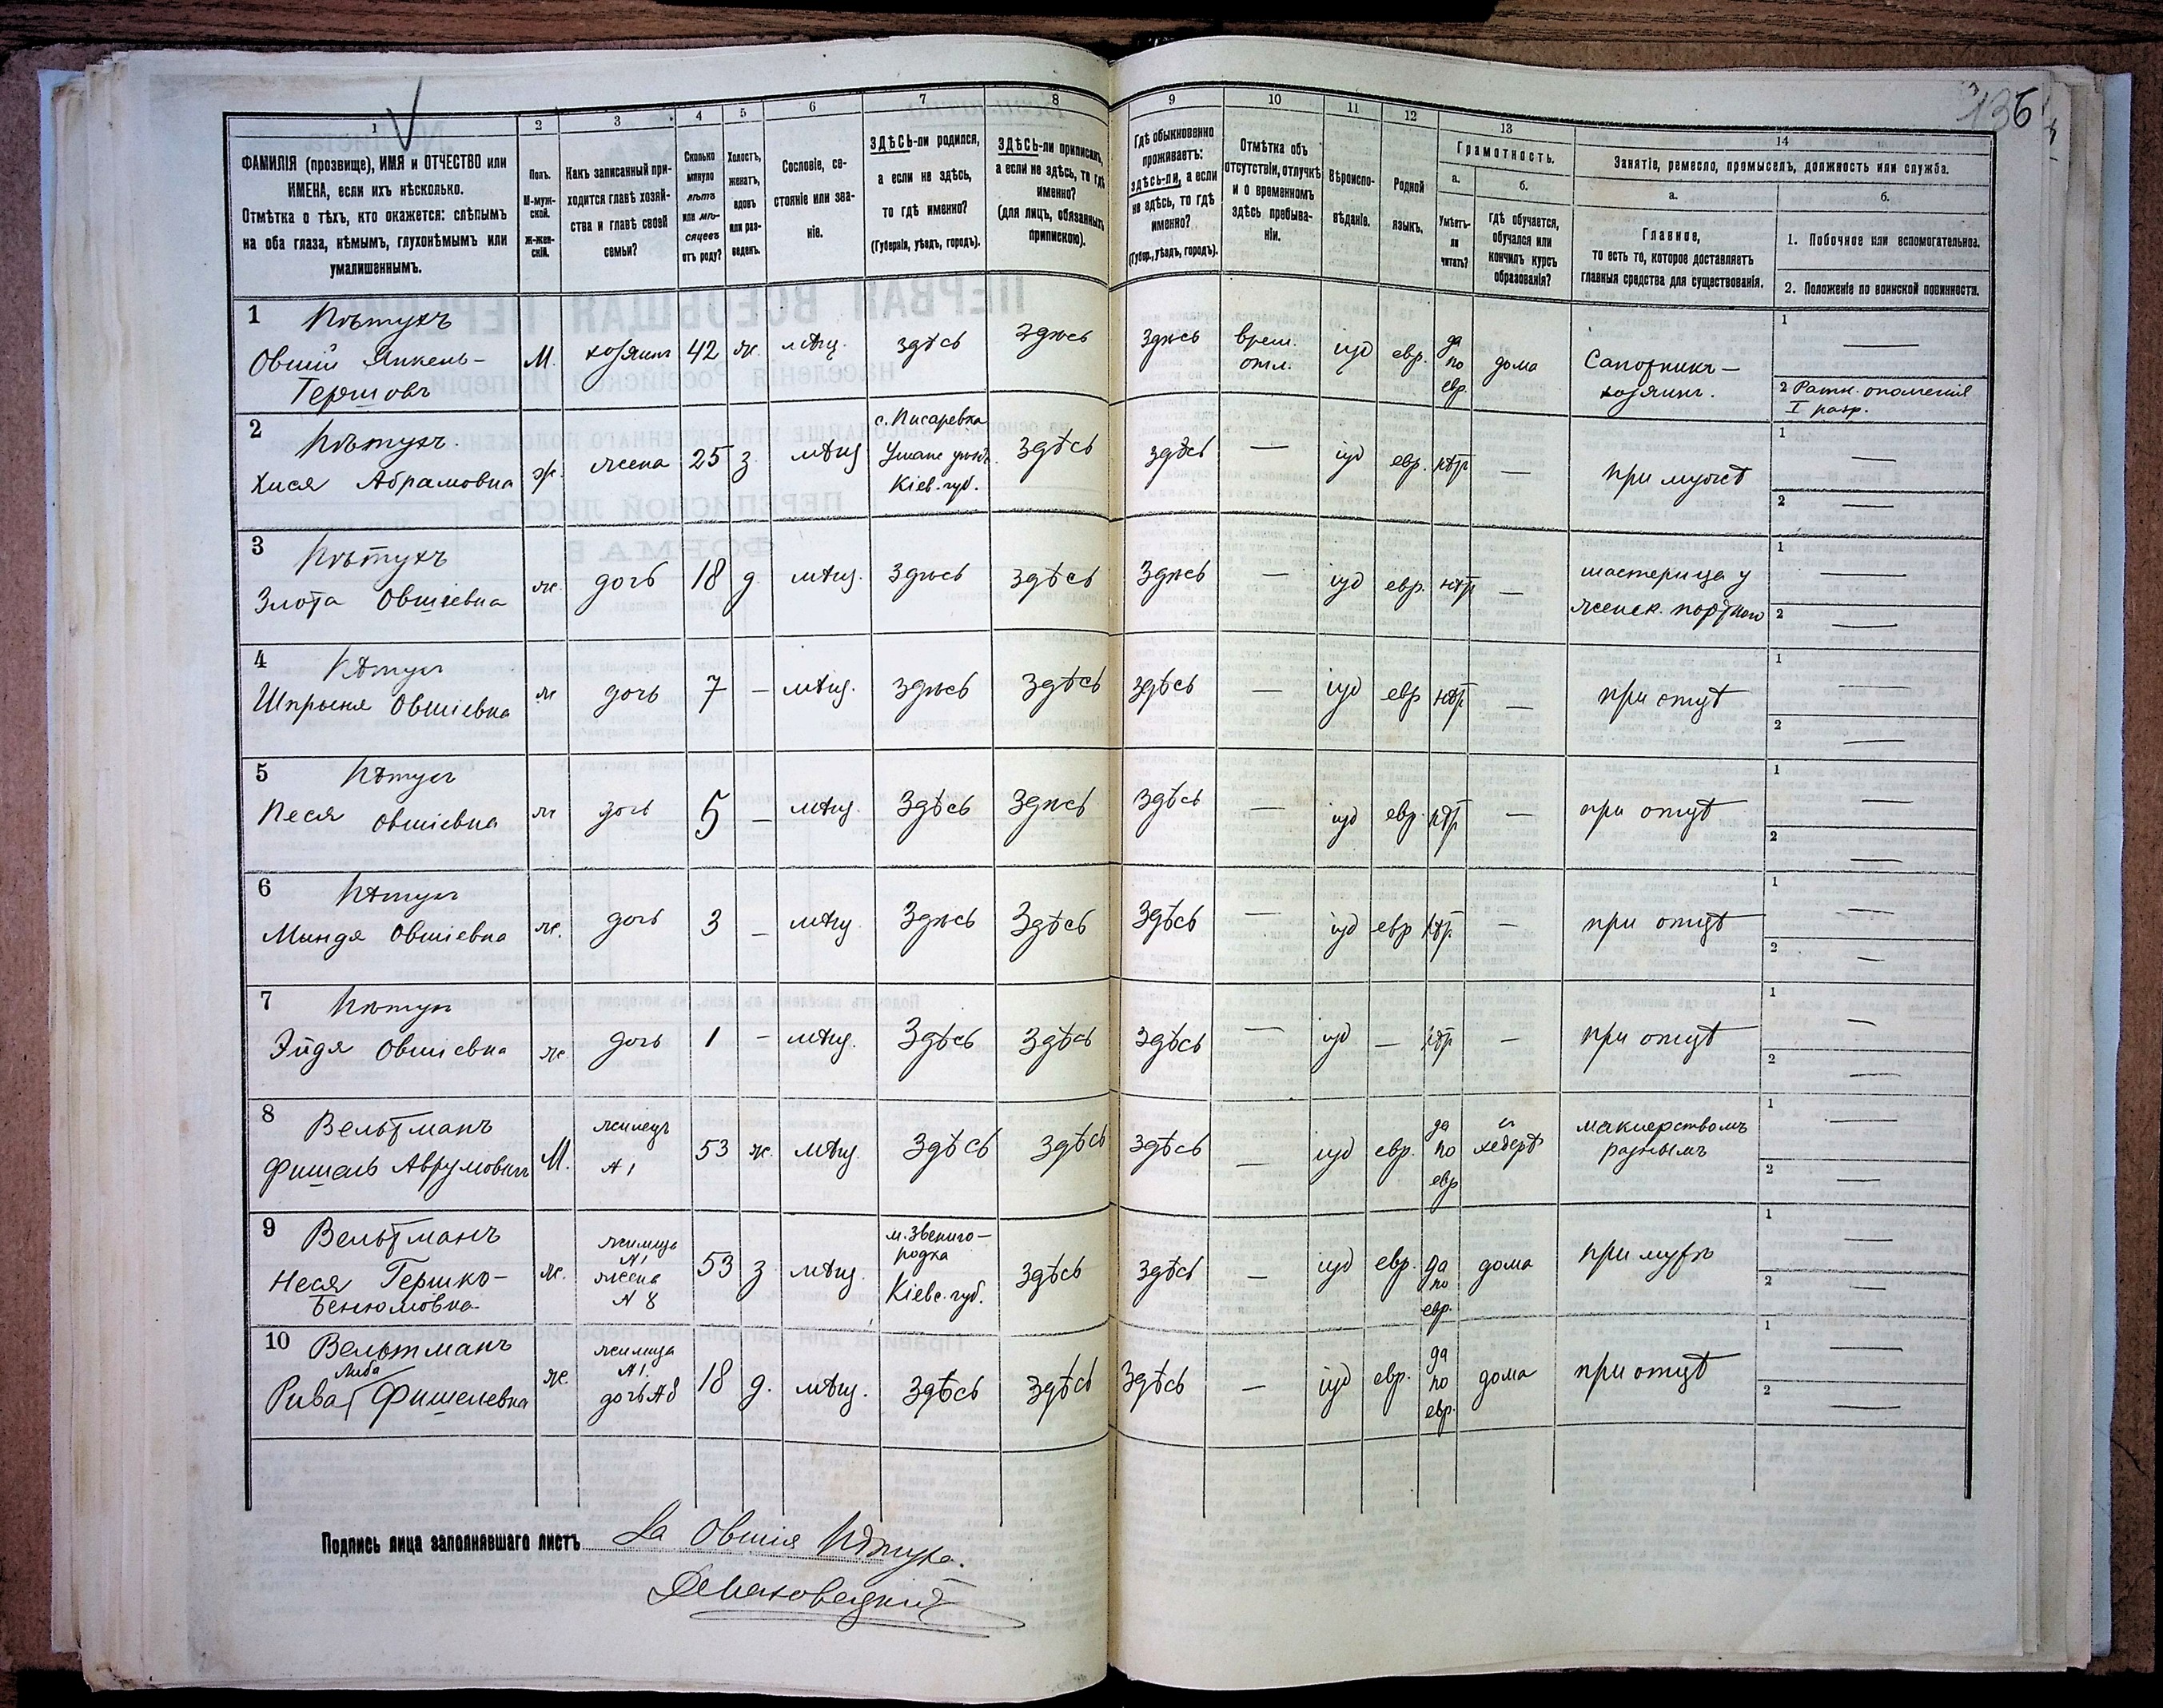 136
1
2
3
4
5
6
7
8
9
10
11
12
13
14
ФАМИЛІЯ (прозвище), ИМЯ и ОТЧЕСТВО или
ИМЕНА, если ихъ нѣсколько.
Отмѣтка о тѣхъ, кто окажется: слѣпымъ
на оба глаза, нѣмымъ, глухонѣмымъ или
умалишеннымъ.
Полъ.
М-муж-
ской.
Ж-жен-
скій.
Какъ записанный при-
ходится главѣ хозяй-
ства и главѣ своей
семьи?
Сколько
минуло
лѣтъ
или мѣ-
сяцевъ
отъ роду?
Холостъ,
женатъ,
вдовъ
или раз-
веденъ.
Сословіе, со-
стояніе или зва-
ніе.
ЗДѢСЬ-ли родился,
а если не здѣсь,
то гдѣ именно?
(Губернія, уѣздъ, городъ).
ЗДѢСЬ-ли приписанъ,
а если не здѣсь, то гдѣ
именно?
(для лицъ, обязанныхъ
припискою).
Гдѣ обыкновенно
проживаетъ:
здѣсь-ли, а если
не здѣсь, то гдѣ
именно?
(Губер., уѣздъ, городъ).
Отмѣтка объ
отсутствіи, отлучкѣ
и о временномъ
здѣсь пребыва-
ніи.
Вѣроиспо-
вѣданіе.
Родной
языкъ.
Грамотность.
а.
Умѣетъ-
ли
читать?
б.
гдѣ обучается,
обучался или
кончилъ курсъ
образованія?
Занятіе, ремесло, промыселъ, должность или служба.
а.
Главное,
то есть то, которое доставляетъ
главныя средства для существованія.
б.
1. Побочное или вспомогательное.
2. Положеніе по воинской повинности.
1 Пѣтухъ
Овшій Янкель-
Гершовъ
М. хозяинъ 42 ж. мѣщ. здѣсь здѣсь здѣсь
врем.
отл.
іуд евр.
да
по
евр.
дома
Сапожникъ –
хозяинъ.
1 —
2 Ратн. ополченія
I разр.
2 Пѣтухъ.
Хися Абрамовна
ж. жена 25 з мѣщ
с. Писаревка
Уман. уѣзд.
Кіев. губ.
здѣсь здѣсь — іуд евр. нѣт — при мужѣ
1 —
2 —
3 Пѣтухъ
Злота Овшіевна
ж. дочь 18 д. мѣщ. здѣсь здѣсь здѣсь — іуд евр. нѣт —
мастерица у
женск. портного
1 —
2 —
4 Пѣтухъ
Шпрыня Овшіевна
ж дочь 7 — мѣщ. здѣсь здѣсь здѣсь — іуд евр нѣт — при отцѣ
1 —
2 —
5 Пѣтухъ
Песя Овшіевна
ж дочь 5 — мѣщ. здѣсь здѣсь здѣсь — іуд евр. нѣт — при отцѣ
1 —
2 —
6 Пѣтухъ
Миндя Овшіевна
ж. дочь 3 — мѣщ здѣсь здѣсь здѣсь — іуд евр нѣт. — при отцѣ
1 —
2 —
7 Пѣтухъ
Эйдя Овшіевна
ж дочь 1 — мѣщ. здѣсь здѣсь здѣсь — іуд — нѣт — при отцѣ
1 —
2 —
8 Вельтманъ
Фишель Аврумовичъ
М.
жилецъ
№1
53 ж. мѣщ. здѣсь здѣсь здѣсь — іуд евр.
да
по
евр
въ
хедерѣ
маклерствомъ
разнымъ
1 —
2 —
9 Вельтманъ
Неся Гершко-
Бенюмовна
ж.
жилица
№1
жена
№ 8
53 з мѣщ.
м. Звениго-
родка
Кіевс. губ.
здѣсь здѣсь — іуд евр.
да
по
евр.
дома при мужѣ
1 —
2 —
10 Вельтманъ
Либа
Рива Фишелевна
ж.
жилица
№1.
дочь №8
18 д. мѣщ. здѣсь здѣсь здѣсь — іуд евр.
да
по
евр.
дома при отцѣ
1 —
2 —
Подпись лица заполнявшаго листъ За Овшія Пѣтуха.